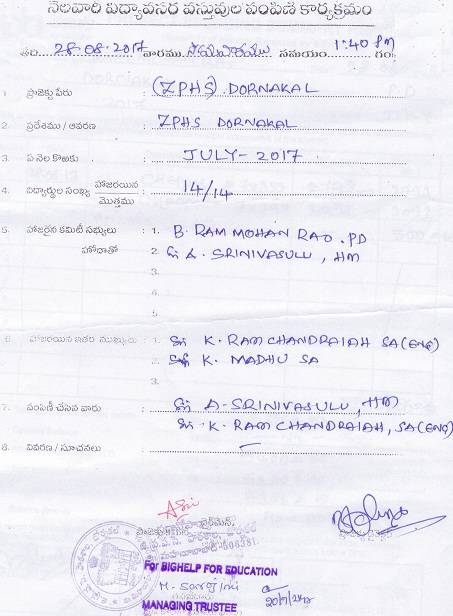 నెలవారి విద్యావసర వస్తువుల పంపిణి కార్యక్రమం
తేది. 28-08-2017 వారము సోమవారము సమయం 1:40 PM గం
1. ప్రాజెక్టు పేరు : (ZPHS) DORNAKAL
2. ప్రదేశము / ఆవరణ : ZPHS DORNAKAL
3. ఏ నెల కొఱకు : JULY-2017
4. విద్యార్థుల సంఖ్య హాజరయిన : 14/14
మొత్తము
5. హాజరైన కమిటీ సభ్యులు : 1. B. RAM MOHAN RAO. PD
హోధాతో 2. Sri A. SRINIVASULU, HM
3.
4.
5.
6. హాజరయిన ఇతర ముఖ్యులు : 1. Sri K. RAM CHANDRAIAH SA(ENG)
2. Sri K. MADHU SA
3.
7. పంపిణీ చేసిన వారు : Sri A-SRINIVASULU, HM
Sri K. RAM CHANDRAIAH, SA(ENG)
8. వివరణ / సూచనలు : —
For BIGHELP FOR EDUCATION
M. Sarojini
MANAGING TRUSTEE